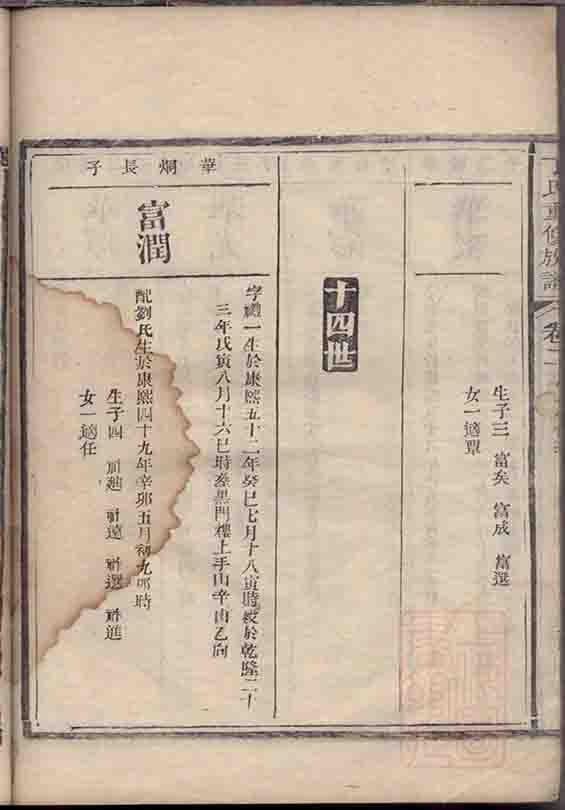 氏重修族譜
卷二
生子三 富矣 富成 富選
女一適覃
十四世
華炯長子
富潤
字禮一生於康熙五十二年癸巳七月十八寅時歿於乾隆二十
三年戊寅八月十六巳時葬黑門樓上手山辛山乙向
配劉氏生於康熙四十九年辛卯五月初九卯時
生子四
女一適任